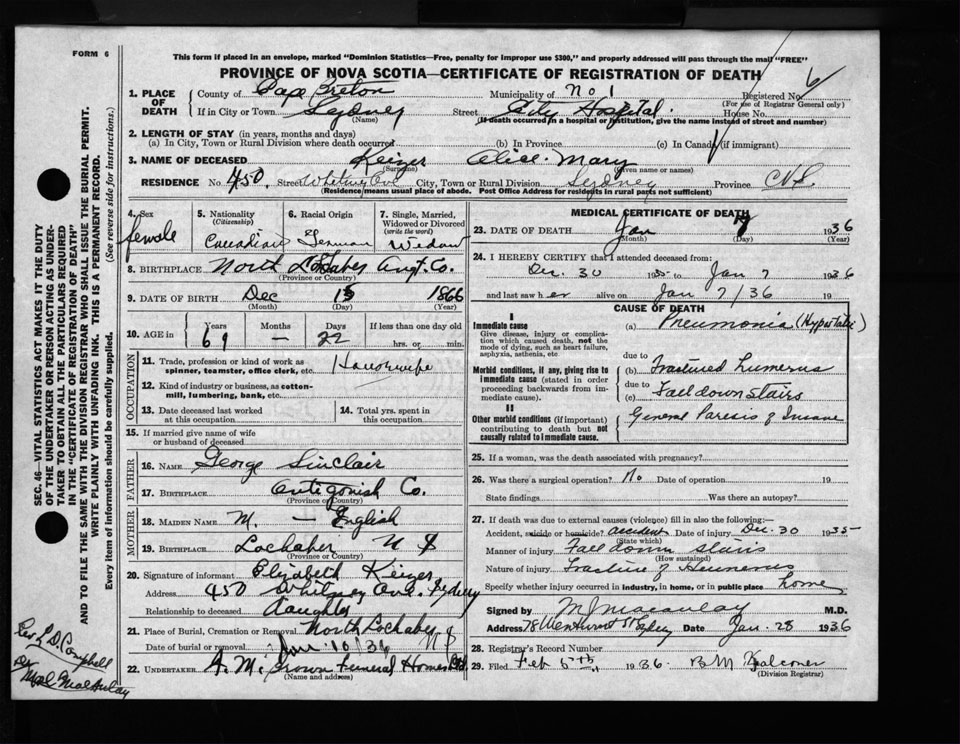 FORM 6
This form if placed in an envelope, marked "Dominion Statistics—Free, penalty for improper use $300," and properly addressed will pass through the mail "FREE"
PROVINCE OF NOVA SCOTIA—CERTIFICATE OF REGISTRATION OF DEATH
1. PLACE OF DEATH County of Cape Breton Municipality of No 1 Registered No 6
(For use of Registrar General only)
If in City or Town Sydney Street City Hospital. House No.
(Name) (If death occurred in a hospital or institution, give the name instead of street and number)
2. LENGTH OF STAY (in years, months and days)
(a) In City, Town or Rural Division where death occurred (b) In Province (c) In Canada (if immigrant)
3. NAME OF DECEASED Keizer Alice Mary
(Surname) (Given name or names)
RESIDENCE No 450 Street Whitney Ave City, Town or Rural Division Sydney Province N.S.
(Residence means usual place of abode. Post Office Address for residents in rural parts not sufficient)
4. Sex female
5. Nationality (Citizenship) Canadian
6. Racial Origin German
7. Single, Married, Widowed or Divorced (write the word) Widow
8. BIRTHPLACE North Lochaber Angt. Co.
(Province or Country)
9. DATE OF BIRTH Dec 15 1866
(Month) (Day) (Year)
10. AGE in Years 69 Months — Days 22 If less than one day old
hrs. or min.
OCCUPATION
11. Trade, profession or kind of work as spinner, teamster, office clerk, etc. Housewife
12. Kind of industry or business, as cotton-mill, lumbering, bank, etc.
13. Date deceased last worked at this occupation
14. Total yrs. spent in this occupation
15. If married give name of wife or husband of deceased
FATHER
16. NAME George Sinclair
17. BIRTHPLACE Antigonish Co.
(Province or Country)
MOTHER
18. MAIDEN NAME M. — English
19. BIRTHPLACE Lochaber N S
(Province or Country)
20. Signature of informant Elizabeth Keizer
Address 450 Whitney Ave. Sydney
Relationship to deceased daughter
21. Place of Burial, Cremation or Removal North Lochaber N S
Date of burial or removal Jan 10/36
22. UNDERTAKER A. M. Brown Funeral Homes Ltd.
(Name and address)
MEDICAL CERTIFICATE OF DEATH
23. DATE OF DEATH Jan 7 1936
(Month) (Day) (Year)
24. I HEREBY CERTIFY that I attended deceased from:
Dec. 30 1935 to Jan 7 1936
and last saw her alive on Jan 7/36 19
CAUSE OF DEATH
I
Immediate cause
Give disease, injury or complication which caused death, not the mode of dying, such as heart failure, asphyxia, asthenia, etc
(a) Pneumonia (Hypostatic)
due to
Morbid conditions, if any, giving rise to immediate cause (stated in order proceeding backwards from immediate cause).
(b) Fractured Humerus
due to
(c) Fall down stairs
II
Other morbid conditions (if important) contributing to death but not causally related to immediate cause.
General Paresis of Insane
25. If a woman, was the death associated with pregnancy?
26. Was there a surgical operation? No Date of operation 19
State findings Was there an autopsy?
27. If death was due to external causes (violence) fill in also the following:—
Accident, suicide or homicide? accident Date of injury Dec. 30 1935
(State which)
Manner of injury Fall down stairs
(How sustained)
Nature of injury Fracture of Humerus
Specify whether injury occurred in industry, in home, or in public place home
Signed by M J Macaulay M.D.
Address 78 Wentworth St Sydney Date Jan. 28 1936
28. Registrar's Record Number
29. Filed Feb 5th 1936 B M Falconer
(Division Registrar)
SEC. 46—VITAL STATISTICS ACT MAKES IT THE DUTY
OF THE UNDERTAKER OR PERSON ACTING AS UNDER-
TAKER TO OBTAIN ALL THE PARTICULARS REQUIRED
IN THE "CERTIFICATE OF REGISTRATION OF DEATH"
AND TO FILE THE SAME WITH THE DIVISION REGISTRAR WHO SHALL ISSUE THE BURIAL PERMIT.
WRITE PLAINLY WITH UNFADING INK. THIS IS A PERMANENT RECORD.
Every item of information should be carefully supplied. (See reverse side for instructions.)
Rev. D. Campbell
MacAulay